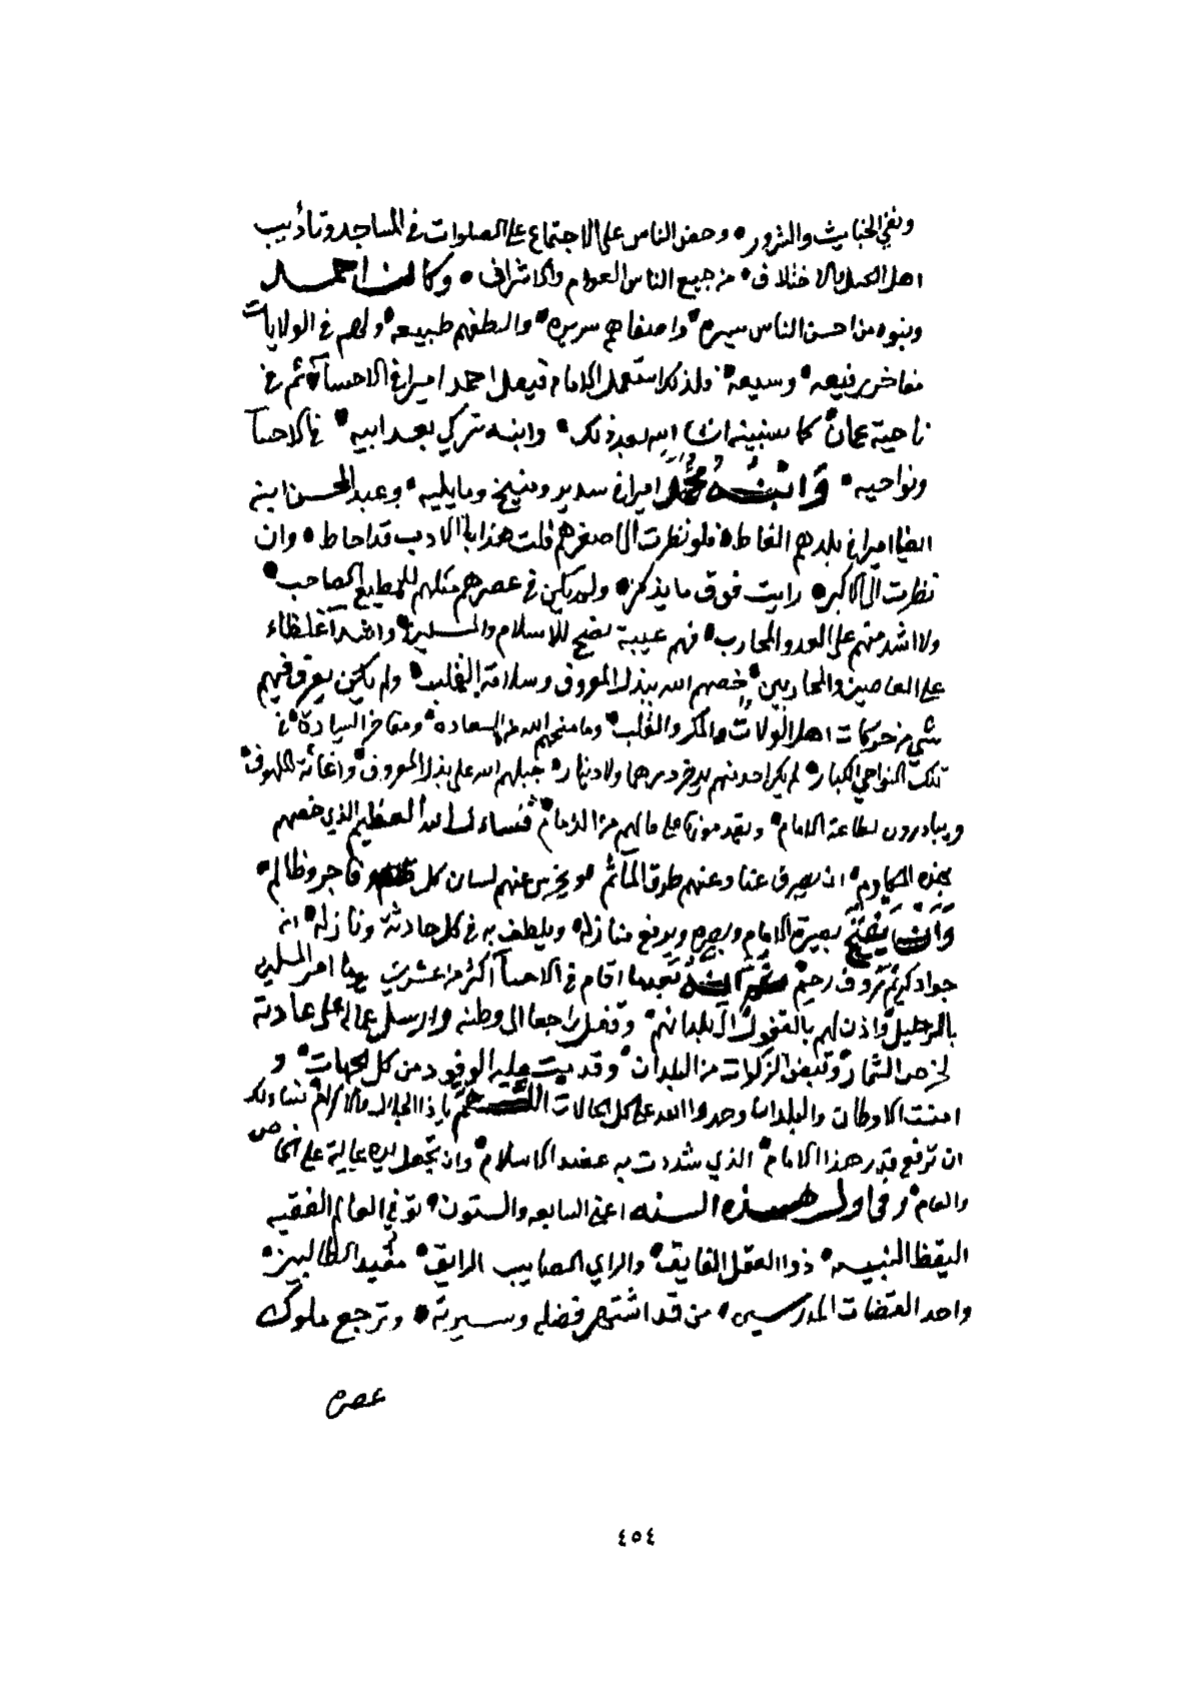 ونفي الخبايث والشرور • وحض الناس على الاجتماع على الصلوات في المساجد وتأديب
اهل الكسل والاختلاف • من جميع الناس العوام والاشراف • وكان احمد
وبنوه من احسن الناس سيرة • واصفاهم سريره • والطفهم طبيعه • ولهم في الولايات
مفاخر رفيعه • وسيعه • ولذلك استعمل الامام فيصل احمد اميرا في الاحسآء ثم في
ناحية عمان • كما سنبينه ان شا الله بعد ذلك • وابنه تركي بعد ابيه • في الاحسآ
ونواحيه • وابنه محمد اميرا في سدير ومنيخ ومايليه • وعبد المحسن ابنه
ايضا اميرا في بلدهم الغاط • فلو نظرت الى اصغرهم قلت هذا بالادب قد احاط • وان
نظرت الى الاكبر • رايت فوق ما يذكر • ولم يكن في عصرهم مثلهم للمطيع الصاحب •
ولا اشد منهم على العدو المحارب • فهم عيبة نصح للاسلام والمسلمين • واشدآء غلظاء
على العاصين والمحاربين • خصهم الله ببذل المعروف وسلامة القلب • ولم يكن يعرف فيهم
شي من حركات اهل الولات والمكر والقلب • وما منحهم الله من السعاده • ومفاخر السيادة • في
تلك النواحي الكبار • لم يكن احد منهم يدخر درهما ولا دينار • جبلهم الله على بذل المعروف • واغاثة الملهوف •
ويبادرون لطاعة الامام • ويقدمونها على مالهم من الذمام • فنساء ل الله العظيم الذي خصهم
بهذه المكارم • ان يصرف عنا وعنهم طرق المآثم • ويخرس عنهم لسان كل فاجر وظالم •
وان يفتح بصيرة الامام وبصره ويرفع منازله • ويلطف به في كل حادثة ونازله • انه
جواد كريم رؤوف رحيم ثم انه بعدما اقام في الاحسآ اكثر من عشرين يوما امر المسلمين
بالرحيل واذن لهم بالقفول الى بلدانهم • وقفل راجعا الى وطنه وارسل عماله على عادته
لخرص الثمار • وقبض الزكوات من البلدان • وقدمت عليه الوفود من كل الجهات • و
امنت الاوطان والبلدان وحمدوا الله على كل الحالات اللهم يا ذا الجلال والاكرام نساء لك
ان ترفع قدر هذا الامام • الذي شددت به عضد الاسلام • وان تجعل يده عالية على الخاص
والعام • وفي اول هذه السنه اعني السابعه والستون • توفي العالم الفقيه
اليقظ النبيه • ذو العقل الفايق • والراي الصايب الرايق • مفيد الطالبين •
واحد القضات المدرسين • من قد اشتهر فضله وسيرته • وترجع ملوك
عصره
٤٥٤